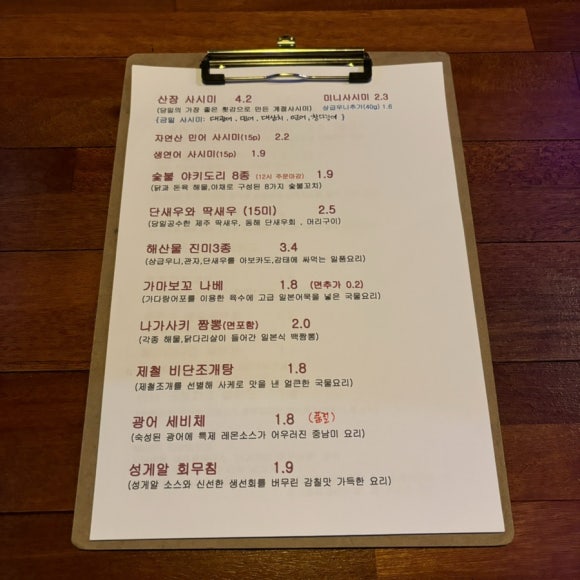 산장 사시미 4.2 미니사시미 2.3
(당일의 가장 좋은 횟감으로 만든 계절사시미) 상급우니추가(40g) 1.6
{금일 사시미: 대광어, 대삼치, 연어, }
자연산 민어 사시미(15p) 2.2
생연어 사시미(15p) 1.9
숯불 야키도리 8종 (12시 주문마감) 1.9
(닭과 돈육 해물,야채로 구성된 8가지 숯불꼬치)
단새우와 딱새우 (15미) 2.5
(당일공수한 제주 딱새우, 동해 단새우회 , 머리구이)
해산물 진미3종 3.4
(상급우니,관자,단새우를 아보카도,감태에 싸먹는 일품요리)
가마보꼬 나베 1.8 (면추가 0.2)
(가다랑어포를 이용한 육수에 고급 일본어묵을 넣은 국물요리)
나가사키 짬뽕(면포함) 2.0
(각종 해물,닭다리살이 들어간 일본식 백짬뽕)
제철 비단조개탕 1.8
(제철조개를 선별해 사케로 맛을 낸 얼큰한 국물요리)
광어 세비체 1.8 (품절)
(숙성된 광어에 특제 레몬소스가 어우러진 중남미 요리)
성게알 회무침 1.9
(성게알 소스와 신선한 생선회를 버무린 감칠맛 가득한 요리)